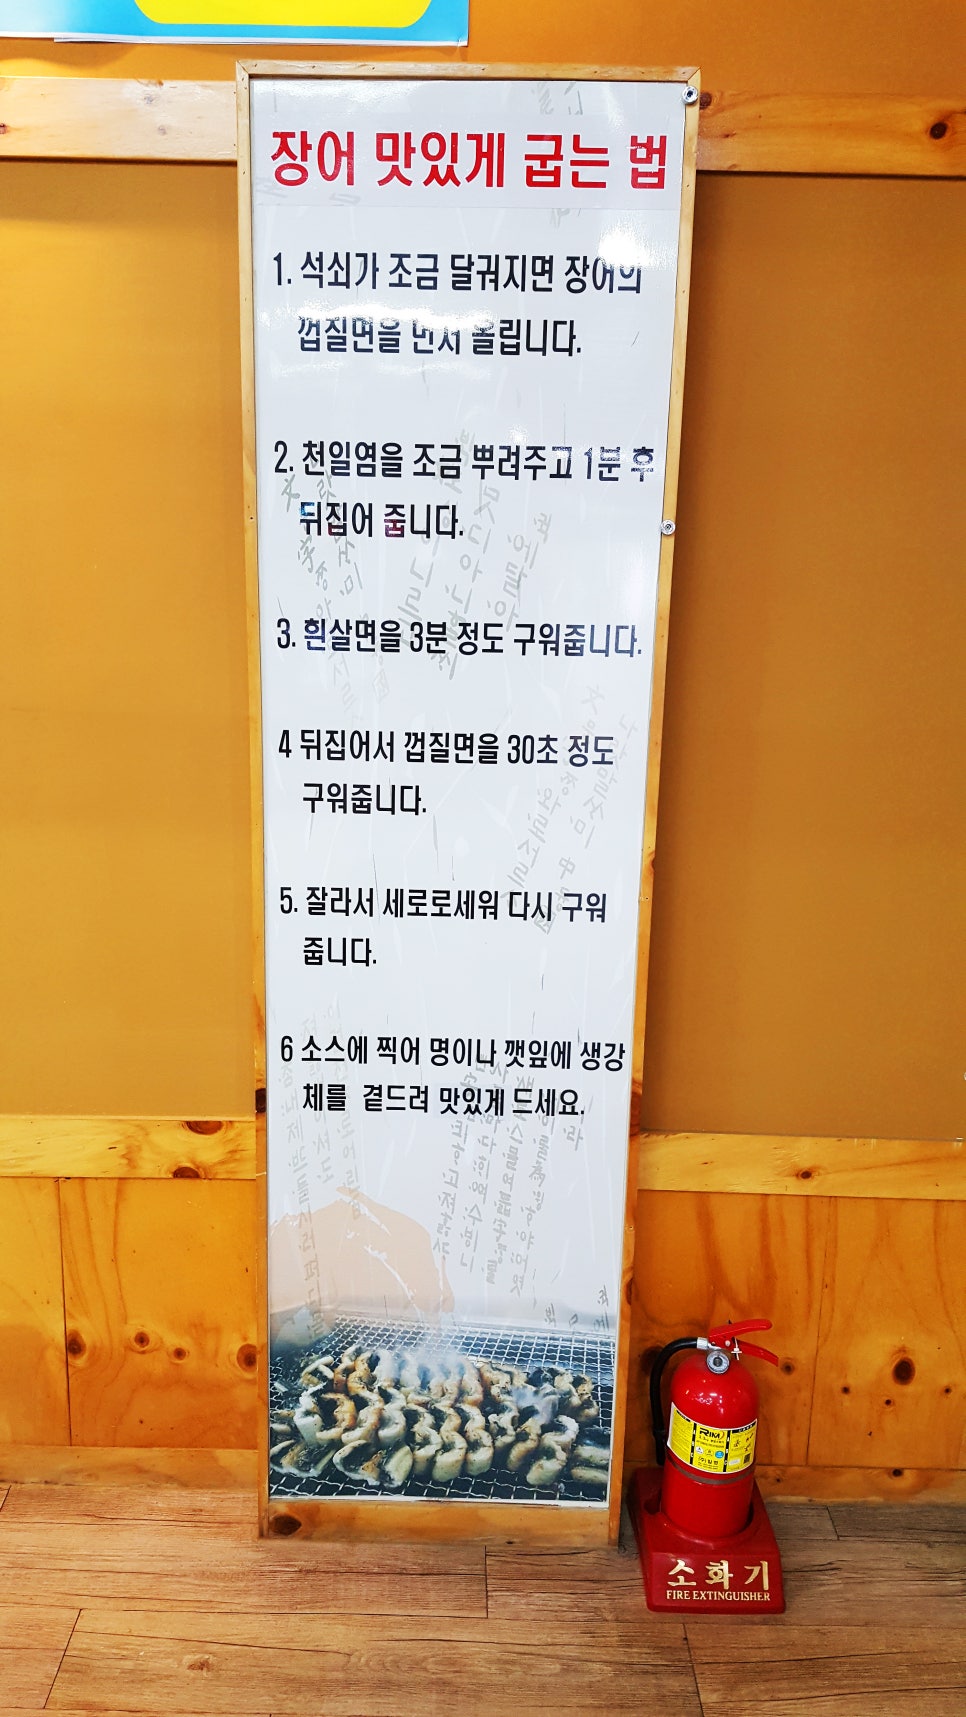 장어 맛있게 굽는 법
1. 석쇠가 조금 달궈지면 장어의
껍질면을 먼저 올립니다.
2. 천일염을 조금 뿌려주고 1분 후
뒤집어 줍니다.
3. 흰살면을 3분 정도 구워줍니다.
4 뒤집어서 껍질면을 30초 정도
구워줍니다.
5. 잘라서 세로로세워 다시 구워
줍니다.
6 소스에 찍어 명이나 깻잎에 생강
체를 곁드려 맛있게 드세요.
RIM
소화기
FIRE EXTINGUISHER